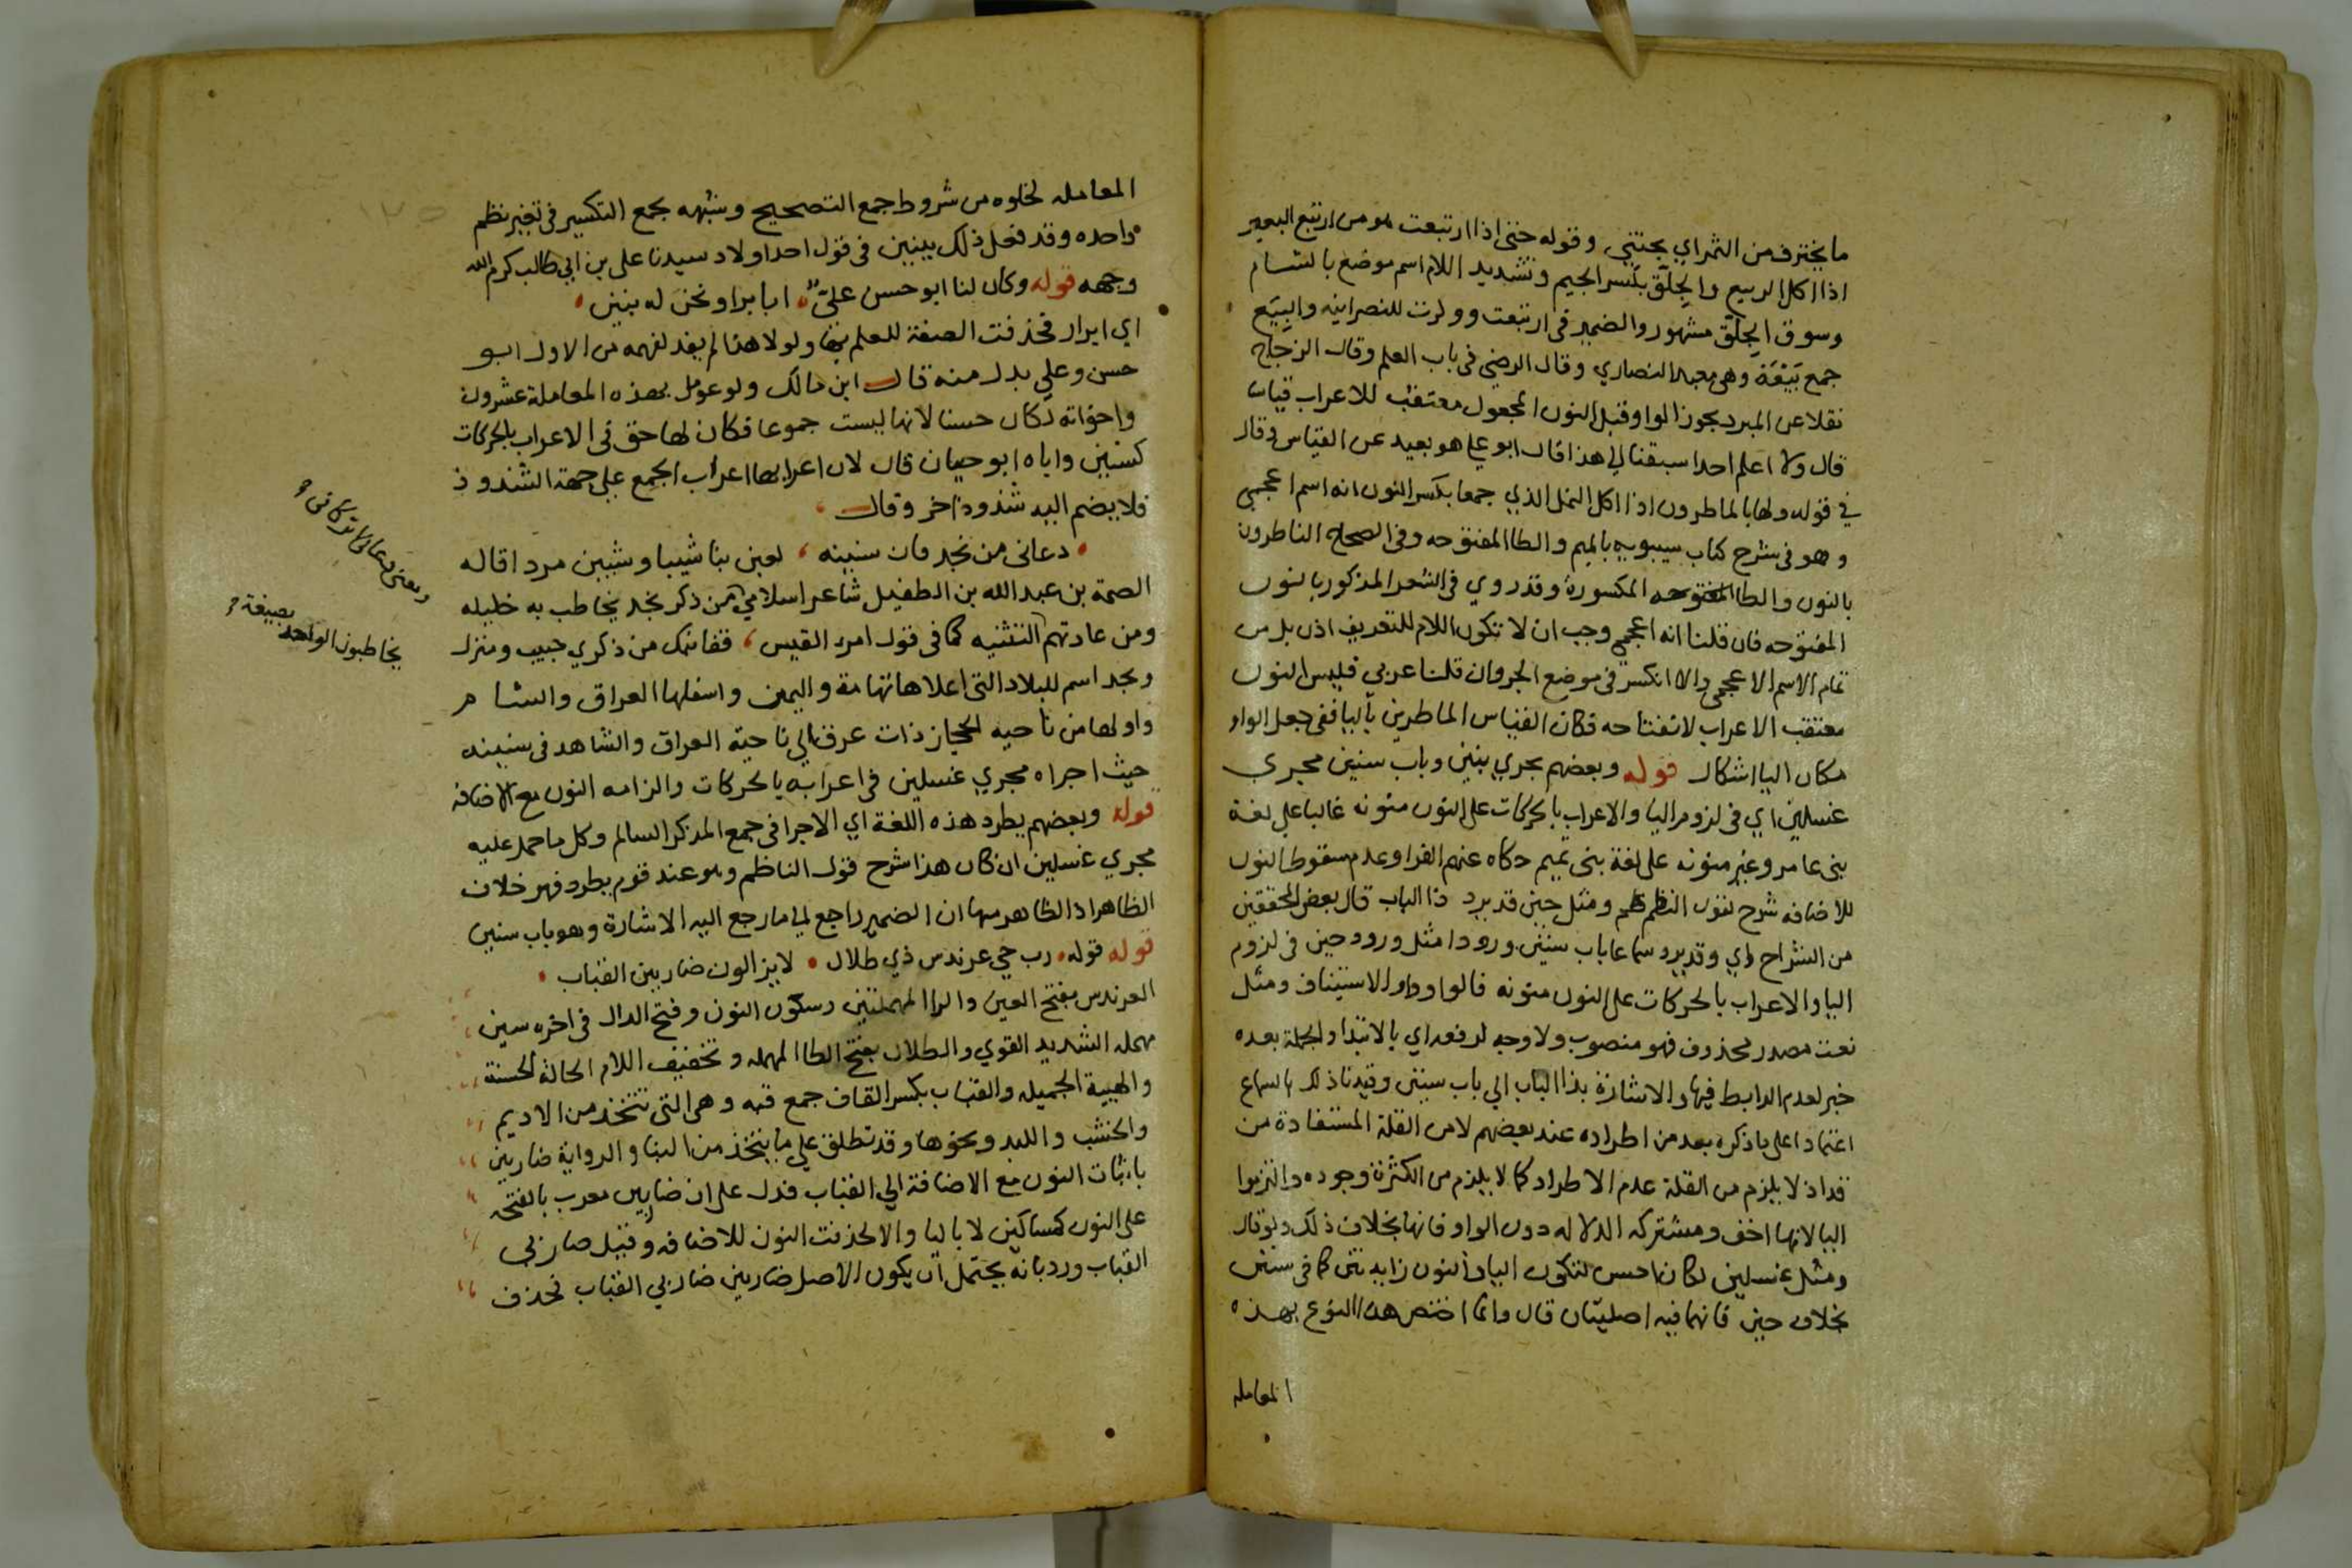 ما يخترف من الثمر اي يجتني وقوله حتى اذا ارتبعت هو من ارتبع البعير
اذا اكل الربيع والجِلّق بكسر الجيم وتشديد اللام اسم موضع بالشام
وسوق الجلّق مشهور والضمير في ارتبعت وولدت للنصرانيه والبِيَع
جمع بَيْعَة وهي معبد النصاري وقال الرضي في باب العلم وقال الزجاج
نقلا عن المبرد يجوز الواو قبل النون المجعول معتقب للاعراب قياسا
قال ولا اعلم احدا سبقنا الي هذا قال ابو علي هو بعيد عن القياس وقال
في قوله ولها بالماطرون اذا اكل النمل الذي جمعا بكسر النون انه اسم اعجمي
وهو في شرح كتاب سيبويه بالميم والطا المفتوحه وفي الصحاح الناطرون
بالنون والطا المكسورة وقد روي في الشعر المذكور بالنون
المفتوحه فان قلنا انه اعجمي وجب ان لا تكون اللام للتعريف اذن بل من
تمام الاسم الاعجمي والا انكسر في موضع الجر وان قلنا عربي فليس النون
معتقب الاعراب لانفتاحه فكان القياس الماطرين باليا ففي جعل الواو
مكان اليا اشكال قوله وبعضهم يجري بنين وباب سنين مجري
غسلين اي في لزوم اليا والاعراب بالحركات على النون منونه غالبا علي لغة
بني عامر وغير منونه على لغة بني تميم حكاه عنهم الفرا وعدم سقوط النون
للاضافه شرح لقول النظم ومثل حين قد يرد ذا الباب قال بعض المحققين
من الشراح اي وقد يرد سماعا باب سنين ورودا مثل ورود حين في لزوم
اليا والاعراب بالحركات على النون منونه فالواو واو الاستيناف ومثل
نعت مصدر محذوف فهو منصوب ولا وجه لرفعه اي بالابتدا والجملة بعده
خبر لعدم الرابط فيها والاشارة بذا الباب الي باب سنين وقيدنا ذلك بالسماع
اعتمادا على ما ذكره بعد من اطراده عند بعضهم لا من القلة المستفادة من
قد اذ لا يلزم من القلة عدم الاطراد كما لا يلزم من الكثرة وجوده والتزموا
اليا لانها اخف ومشتركه الدلاله دون الواو فانها بخلاف ذلك ولو قال
ومثل غسلين لكان احسن لتكون اليا والنون زايدتين كما في سنين
بخلاف حين فانهما فيه اصليتان قال وانما اختص هذا النوع بهذه
المعامله
المعامله لخلوه من شروط جمع التصحيح وشبهه بجمع التكسير في تغير نظم
واحده وقد فعل ذلك ببنين في قول احد اولاد سيدنا علي بن ابي طالب كرم الله
وجهه قوله وكان لنا ابو حسن عليّ ابا برا ونحن له بنين
اي ابرار فحذفت الصفة للعلم بها ولولا هذا لم يفد لفهمه من الاول ابو
حسن وعلي بدل منه قال ابن مالك ولو عومل بهذه المعاملة عشرون
واخواته لكان حسنا لانها ليست جموعا فكان لها حق في الاعراب بالحركات
كسنين واباه ابو حيان قال لان اعرابها اعراب الجمع على جهة الشذوذ
فلا يضم اليه شذوذ اخر وقال
دعاني من نجد فان سنينه لعبن بنا شيبا وشيبن مردا قاله
الصمة بن عبد الله بن الطفيل شاعر اسلامي من ذكر نجد يخاطب به خليله
ومن عادتهم التثنيه كما في قول امرء القيس قفا نبك من ذكري حبيب ومنزل
ونجد اسم للبلاد التي اعلاها تهامة واليمن واسفلها العراق والشام
واولها من ناحيه الحجاز ذات عرق الي ناحية العراق والشاهد في سنينه
حيث اجراه مجري غسلين في اعرابه بالحركات والزامه النون مع الاضافه
قوله وبعضهم يطرد هذه اللغة اي الاجرا في جمع المذكر السالم وكل ما حمل عليه
مجري غسلين ان كان هذا شرح قول الناظم وهو عند قوم يطرد فهو خلاف
الظاهر اذ الظاهر منها ان الضمير راجع لما رجع اليه الاشارة وهو باب سنين
قوله قوله رب حي عرندس ذي طلال لا يزالون ضاربين القباب
العرندس بفتح العين والرا المهملتين وسكون النون وفتح الدال في اخره سين
مهمله الشديد القوي والطلال بفتح الطا المهمله وتخفيف اللام الحالة الحسنة
والهيية الجميله والقباب بكسر القاف جمع قبه وهي التي تتخذ من الاديم
والخشب واللبد ونحوها وقد تطلق علي ما يتخذ من البنا والرواية ضاربين
باثبات النون مع الاضافة الي القباب فدل على ان ضاربين معرب بالفتحه
على النون كمساكين لا باليا والا لحذفت النون للاضافه وقيل ضاربي
القباب ورد بانه يحتمل ان يكون الاصل ضاربين ضاربي القباب فحذف
يخاطبون الواحد بصيغة